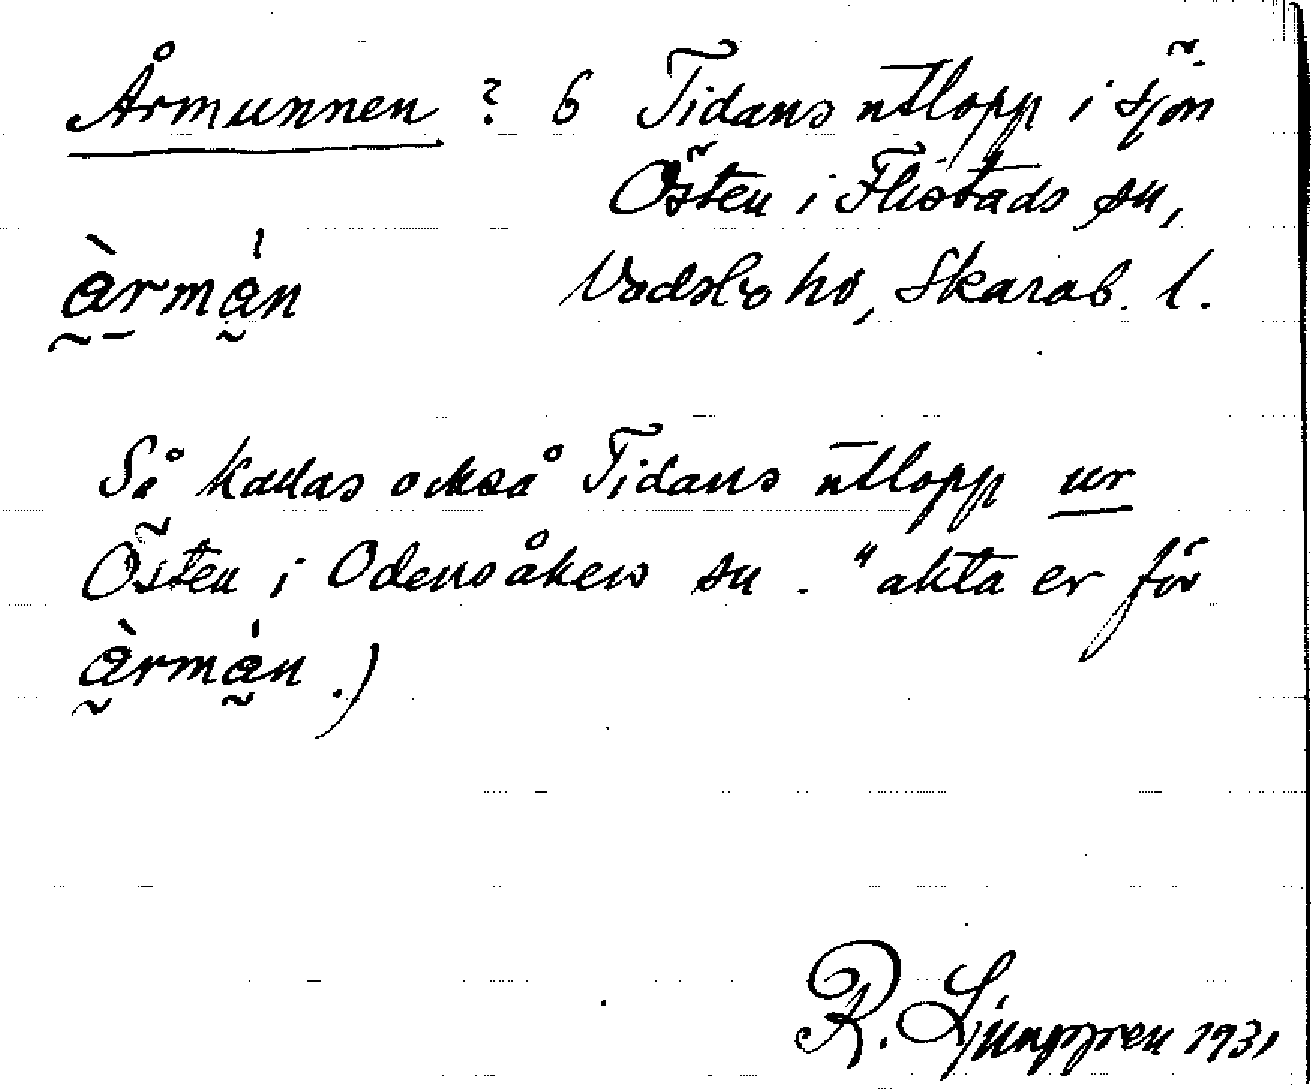 Årmunnen ? 6 Tidans utlopp i sjön
Östen i Flistads sn,
Vadsbo hd, Skarab. l.
àrmán
Så kallas också Tidans utlopp ur
Östen i Odensåkers sn. "akta er för
àrmán.)
R. Ljunggren 1931